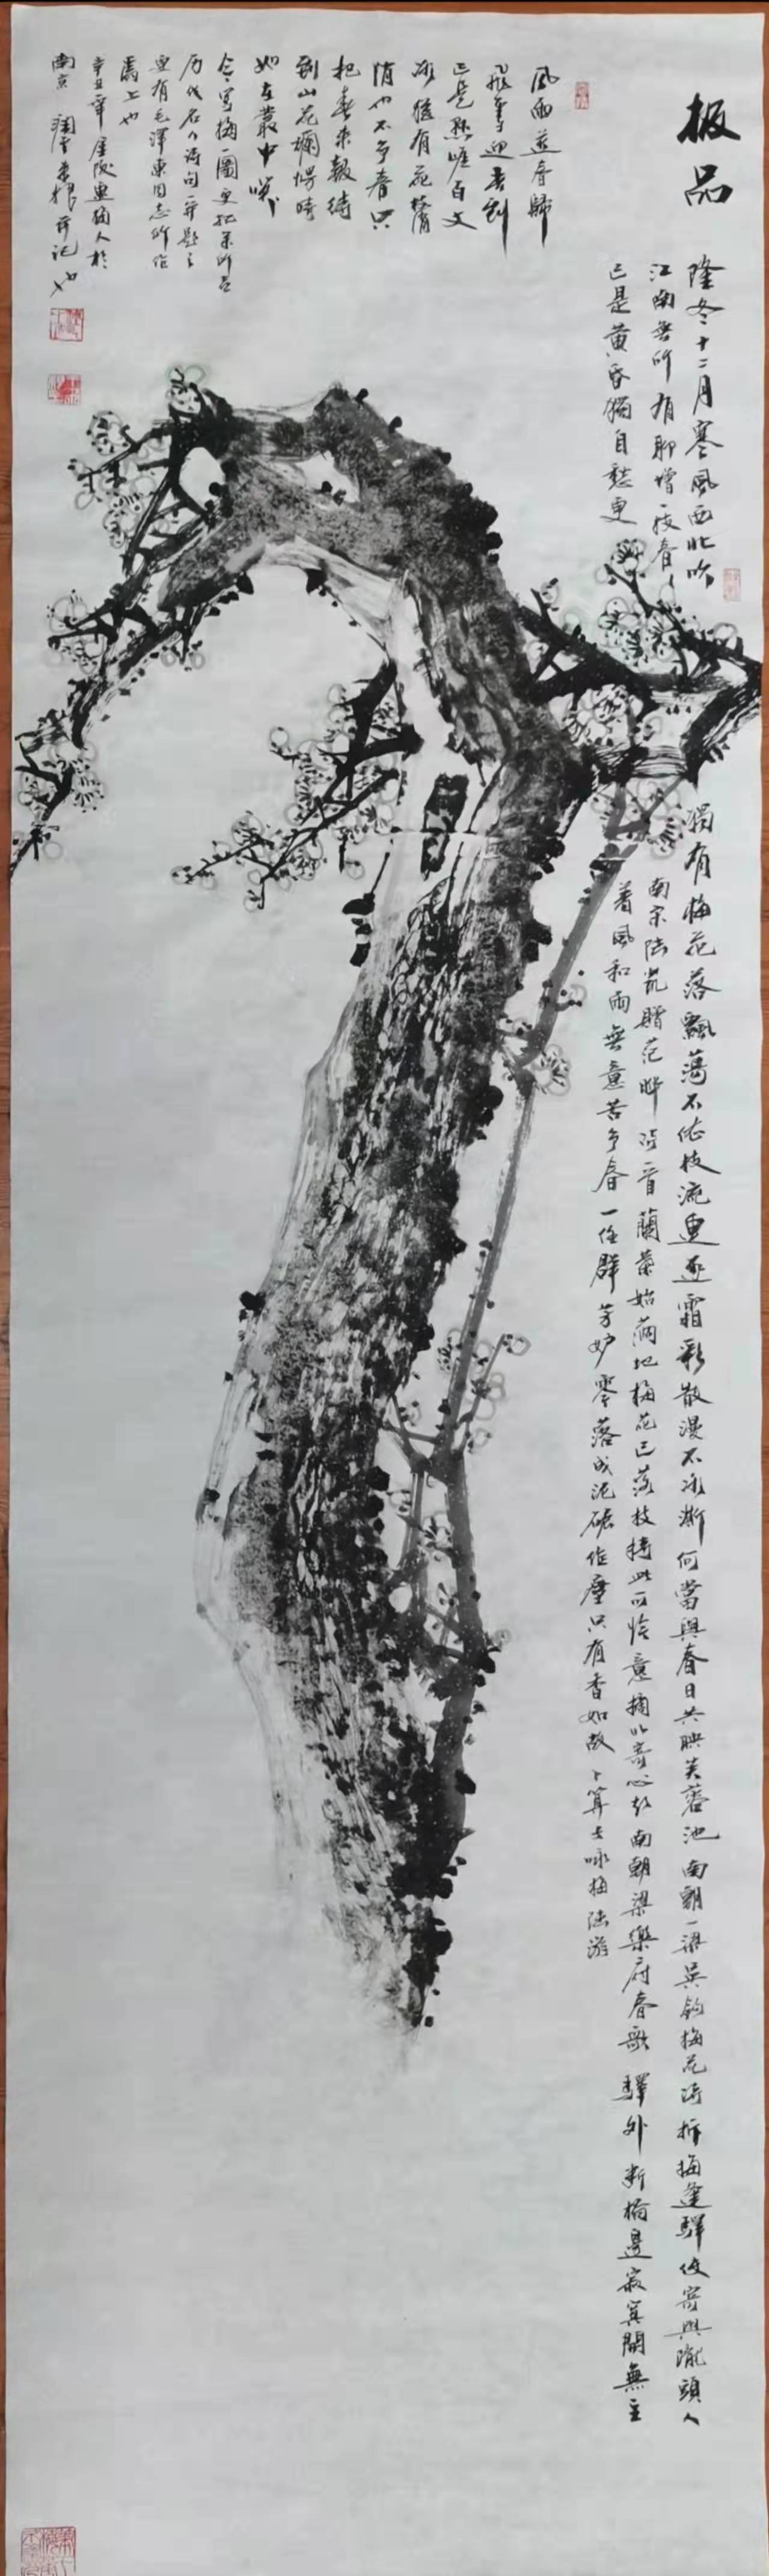 极品
隆冬十二月寒風西北吹獨有梅花落飄蕩不依枝流連逐霜彩散漫不冰澌何當與春日共映芙蓉池南朝一梁吳鈞梅花诗折梅逢驛使寄與隴頭人
江南無所有聊增一枝春南宋陆凯赠范晔诗一首蘭葉始滿地梅花已落枝持此可怜意摘以寄心知南朝梁樂府春歌驛外断橋邊寂寞開無主
已是黄昏獨自愁更着風和雨無意苦争春一任群芳妒零落成泥碾作塵只有香如故卜算子咏梅陆游
風雨送春歸
飛雪迎春到
已是懸崖百丈
冰猶有花枝俏
俏也不争春只
把春来報待
到山花爛熳時
她在叢中笑
今写梅一圖更把余所喜
历代名人诗句一并题之
更有毛澤東同志所作
爲上也
辛丑年金陵画痴人於
南京根并记也